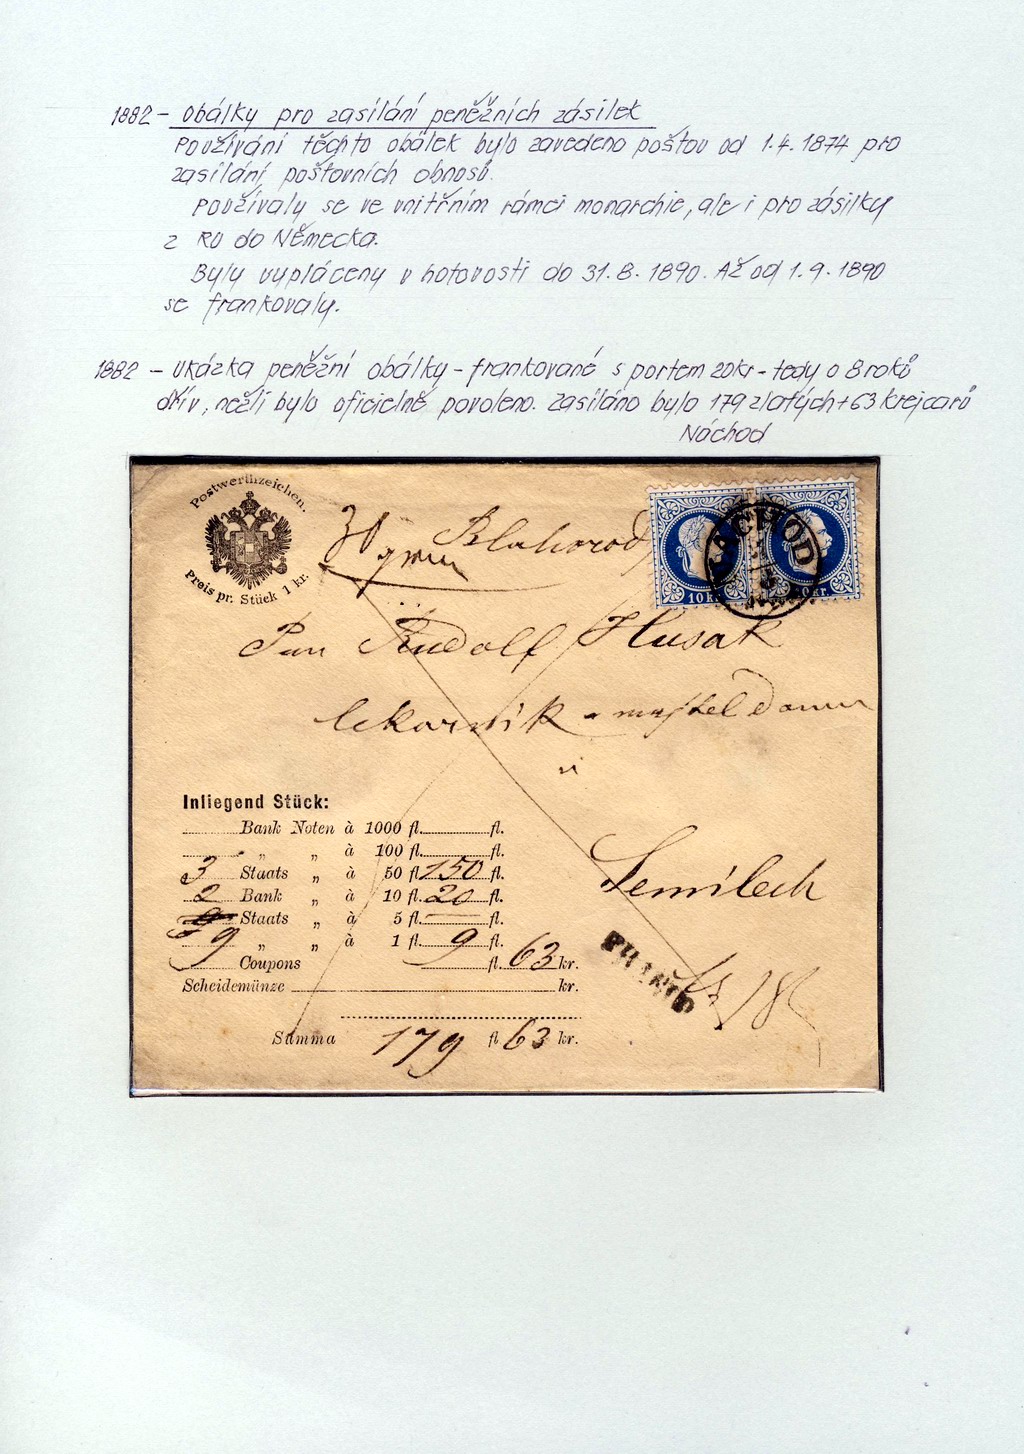 1882 - Obálky pro zasílání peněžních zásilek
Používání těchto obálek bylo zavedeno poštou od 1.4.1874 pro
zasílání poštovních obnosů.
Používaly se ve vnitřním rámci monarchie, ale i pro zásilky
z RU do Německa.
Byly vypláceny v hotovosti do 31.8.1890. Až od 1.9.1890
se frankovaly.
1882 - Ukázka peněžní obálky - frankované s portem 20kr - tedy o 8 roků
dřív, nežli bylo oficielně povoleno. Zasíláno bylo 179 zlatých + 63 krejcarů
Náchod
Postwerthzeichen.
Preis pr. Stück 1 kr.
10 kr.
NACHOD
Pan Rudolf Husak
lekarnik a
v
Semilech
Inliegend Stück:
Bank Noten à 1000 fl. fl.
„ „ à 100 fl. fl.
3 Staats „ à 50 fl. 150 fl.
2 Bank „ à 10 fl. 20 fl.
Staats „ à 5 fl. fl.
9 „ „ à 1 fl. 9 fl.
Coupons fl. 63 kr.
Scheidemünze kr.
Summa 179 fl 63 kr.